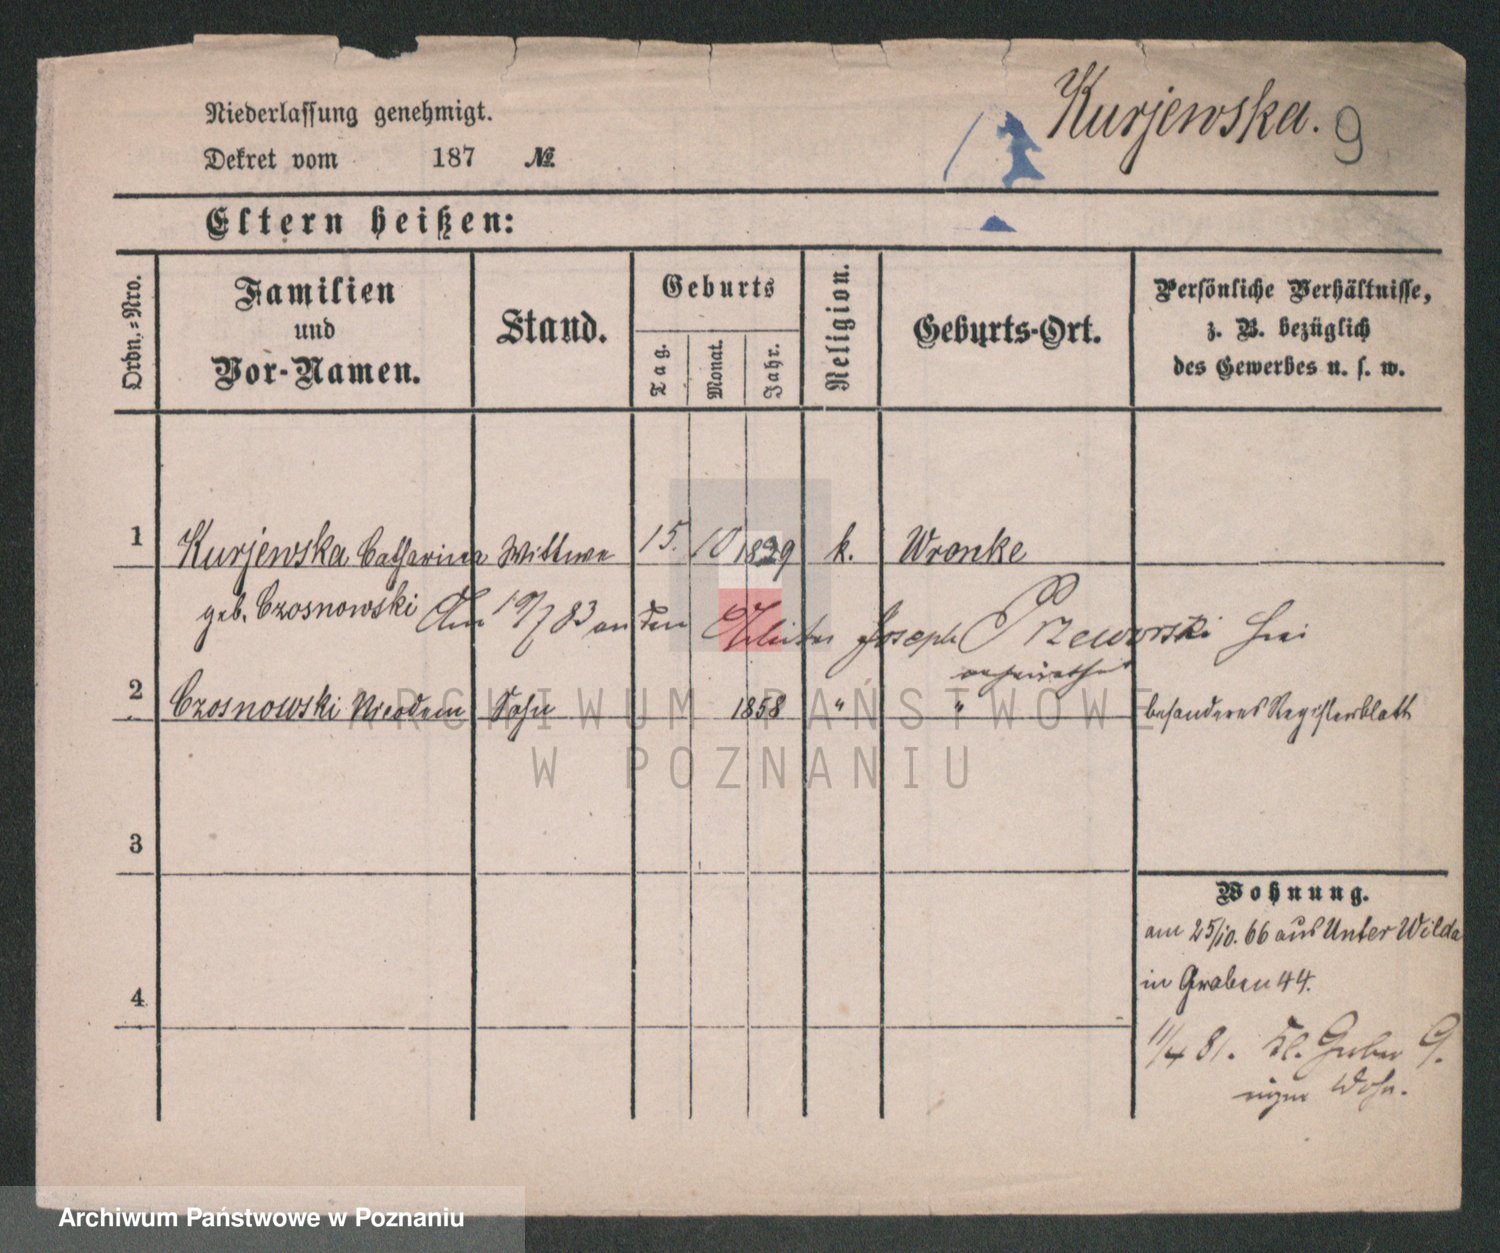 Kurjewska. 9
Niederlassung genehmigt.
Dekret vom 187 №.
Eltern heißen:
Ordn.=Nro.
Familien
und
Vor-Namen.
Stand.
Geburts
Tag.
Monat.
Jahr.
Religion.
Geburts-Ort.
Persönliche Verhältnisse,
z. B. bezüglich
des Gewerbes u. s. w.
1 Kurjewska Catharina Wittwe 15. 10 1829 k. Wronke
geb. Czosnowski Am 19/7 83 an den Joseph Przeworski
2 Czosnowski Nicodem Sohn 1858 " " besonderes Registerblatt
3
4
Wohnung.
am 25/10. 66 aus Unter Wilda
in Graben 44.
11/4 81. Kl. Gerber 9.
Wohn.
ARCHIWUM PAŃSTWOWE
W POZNANIU
Archiwum Państwowe w Poznaniu